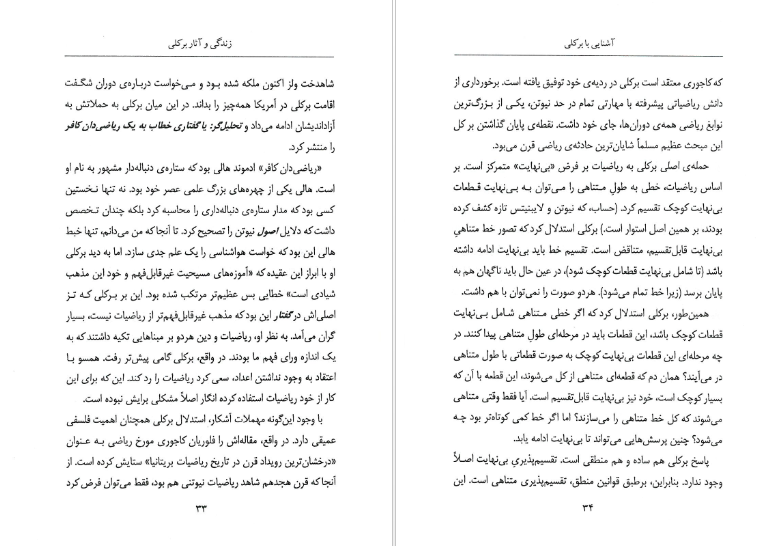 زندگی و آثار برکلی
شاهدخت ولز اکنون ملکه شده بود و می‌خواست درباره‌ی دوران شگفت
اقامت برکلی در آمریکا همه‌چیز را بداند. در این میان برکلی به حملاتش به
آزاداندیشان ادامه می‌داد و تحلیل‌گر: یا گفتاری خطاب به یک ریاضی‌دان کافر
را منتشر کرد.
«ریاضی‌دان کافر» ادموند هالی بود که ستاره‌ی دنباله‌دار مشهور به نام او
است. هالی یکی از چهره‌های بزرگ علمی عصر خود بود. نه تنها نخستین
کسی بود که مدار ستاره‌ی دنباله‌داری را محاسبه کرد بلکه چندان تخصص
داشت که دلایل اصول نیوتن را تصحیح کرد. تا آنجا که من می‌دانم، تنها خبط
هالی این بود که خواست هواشناسی را یک علم جدی سازد. اما به دید برکلی
او با ابراز این عقیده که «آموزه‌های مسیحیت غیرقابل‌فهم و خود این مذهب
شیادی است» خطایی بس عظیم‌تر مرتکب شده بود. این بر برکلی که تز
اصلی‌اش در گفتار این بود که مذهب غیرقابل‌فهم‌تر از ریاضیات نیست، بسیار
گران می‌آمد. به نظر او، ریاضیات و دین هردو بر مبناهایی تکیه داشتند که به
یک اندازه ورای فهم ما بودند. در واقع، برکلی گامی پیش‌تر رفت. همسو با
اعتقاد به وجود نداشتن اعداد، سعی کرد ریاضیات را رد کند. این که برای این
کار از خود ریاضیات استفاده کرده انگار اصلاً مشکلی برایش نبوده است.
با وجود این‌گونه مهملات آشکار، استدلال برکلی همچنان اهمیت فلسفی
عمیقی دارد. در واقع، مقاله‌اش را فلوریان کاجوری مورخ ریاضی به عنوان
«درخشان‌ترین رویداد قرن در تاریخ ریاضیات بریتانیا» ستایش کرده است. از
آنجا که قرن هجدهم شاهد ریاضیات نیوتنی هم بود، فقط می‌توان فرض کرد
۳۳
آشنایی با برکلی
که کاجوری معتقد است برکلی در ردیه‌ی خود توفیق یافته است. برخورداری از
دانش ریاضیاتی پیشرفته با مهارتی تمام در حد نیوتن، یکی از بزرگ‌ترین
نوابغ ریاضی همه‌ی دوران‌ها، جای خود داشت. نقطه‌ی پایان گذاشتن بر کل
این مبحث عظیم مسلماً شایان‌ترین حادثه‌ی ریاضی قرن می‌بود.
حمله‌ی اصلی برکلی به ریاضیات بر فرض «بی‌نهایت» متمرکز است. بر
اساس ریاضیات، خطی به طول متناهی را می‌توان به بی‌نهایت قطعات
بی‌نهایت کوچک تقسیم کرد. (حساب، که نیوتن و لایبنیتس تازه کشف کرده
بودند، بر همین اصل استوار است.) برکلی استدلال کرد که تصور خط متناهیِ
بی‌نهایت قابل‌تقسیم، متناقض است. تقسیم خط باید بی‌نهایت ادامه داشته
باشد (تا شامل بی‌نهایت قطعات کوچک شود)، در عین حال باید ناگهان هم به
پایان برسد (زیرا خط تمام می‌شود). هردو صورت را نمی‌توان با هم داشت.
همین‌طور، برکلی استدلال کرد که اگر خطی متناهی شامل بی‌نهایت
قطعات کوچک باشد، این قطعات باید در مرحله‌ای طولِ متناهی پیدا کنند. در
چه مرحله‌ای این قطعات بی‌نهایت کوچک به صورت قطعاتی با طول متناهی
در می‌آیند؟ همان دم که قطعه‌ای متناهی از کل می‌شوند، این قطعه با آن که
بسیار کوچک است، خود نیز بی‌نهایت قابل‌تقسیم است. آیا فقط وقتی متناهی
می‌شوند که کل خط متناهی را می‌سازند؟ اما اگر خط کمی کوتاه‌تر بود چه
می‌شود؟ چنین پرسش‌هایی می‌تواند تا بی‌نهایت ادامه یابد.
پاسخ برکلی هم ساده و هم منطقی است. تقسیم‌پذیریِ بی‌نهایت اصلاً
وجود ندارد. بنابراین، برطبق قوانین منطق، تقسیم‌پذیری متناهی است. این
۳۴